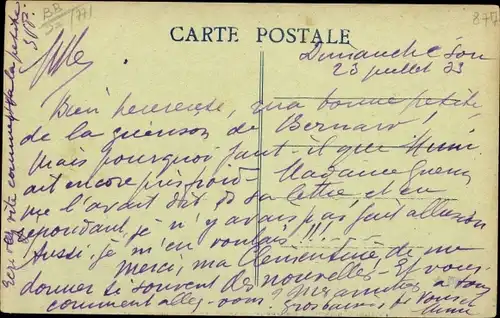 BB
32
/71/
877
CARTE POSTALE
Dimanche soir
23 juillet 33
Bien heureuse, ma bonne petite,
de la guérison de Bernard !
Mais pourquoi faut-il que Mimi
ait encore pris froid - Madame
me l'avait dit de sa lettre et en
répondant, je n'y avais pas fait allusion
Aussi, je m'en voulais !!!
Merci, ma Clémentine de me
donner si souvent des nouvelles - Et vous,
comment allez-vous ? Mes amitiés à tous
gros baisers de
Ecrivez vite comment va la petite